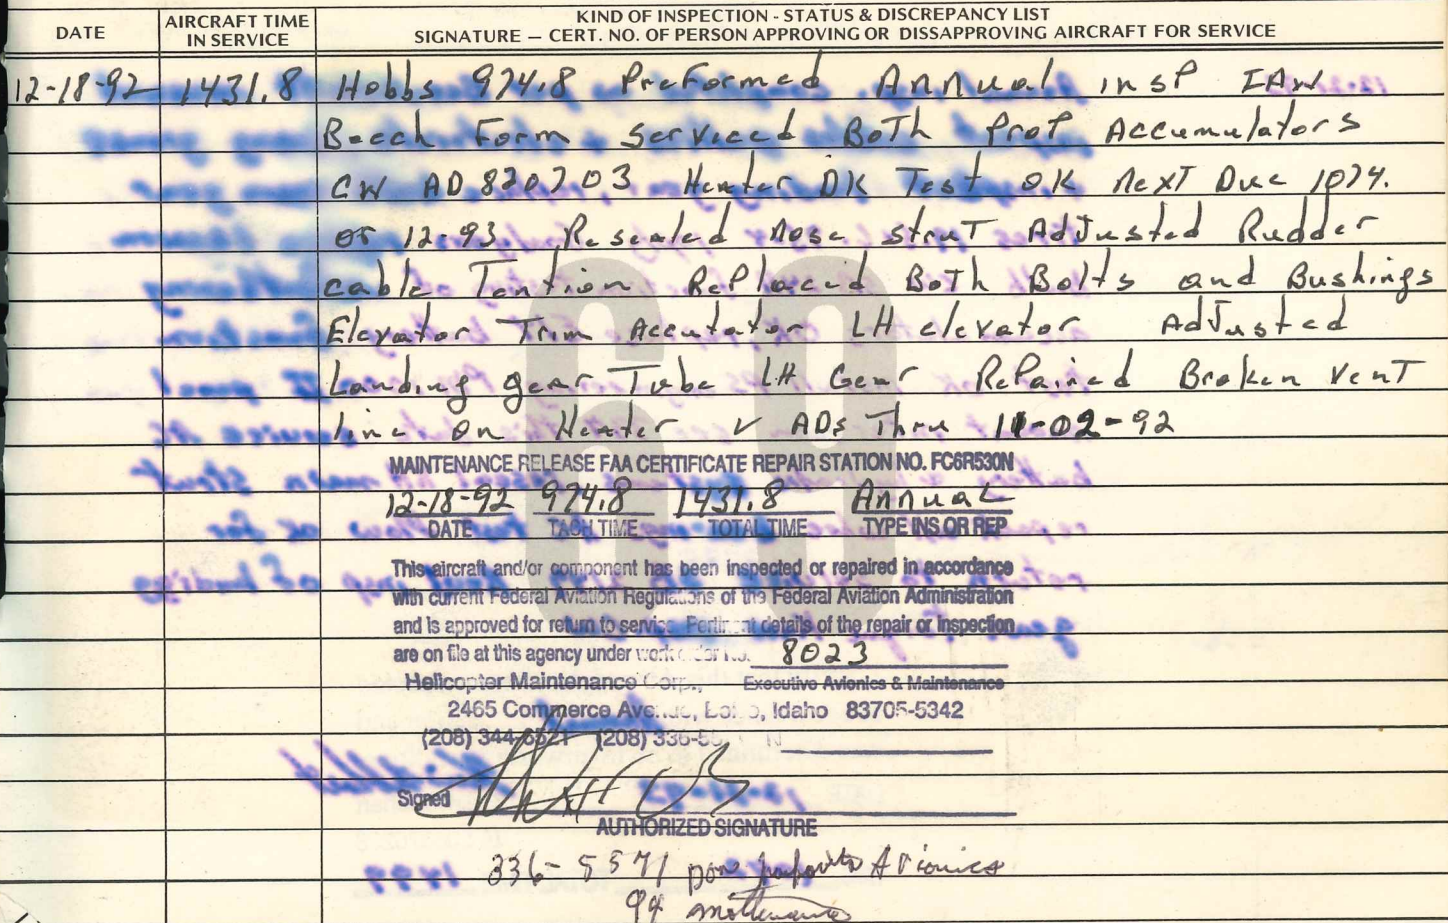 DATE
AIRCRAFT TIME IN SERVICE
KIND OF INSPECTION - STATUS & DISCREPANCY LIST
SIGNATURE — CERT. NO. OF PERSON APPROVING OR DISSAPPROVING AIRCRAFT FOR SERVICE
12-18-92 1431.8 Hobbs 974.8 Preformed Annual insp IAW
Beech Form Serviced Both Prop Accumulators
CW AD 820703 Heater OK Test OK Next Due 1074.
or 12-93. Resealed Nose strut Adjusted Rudder
cable Tention Replaced Both Bolts and Bushings
Elevator Trim Accutator LH elevator Adjusted
Landing gear Tube LH Gear Repaired Broken vent
line on Heater ✓ ADs Thru 11-02-92
MAINTENANCE RELEASE FAA CERTIFICATE REPAIR STATION NO. FC6R530N
12-18-92 974.8 1431.8 Annual
DATE TACH TIME TOTAL TIME TYPE INS OR REP
This aircraft and/or component has been inspected or repaired in accordance
with current Federal Aviation Regulations of the Federal Aviation Administration
and is approved for return to service. Pertinent details of the repair or inspection
are on file at this agency under work order No. 8023
Helicopter Maintenance Corp., Executive Avionics & Maintenance
2465 Commerce Avenue, Idaho 83705-5342
(208) 344- (208) 336-
Signed
AUTHORIZED SIGNATURE
336-5571 Avionics